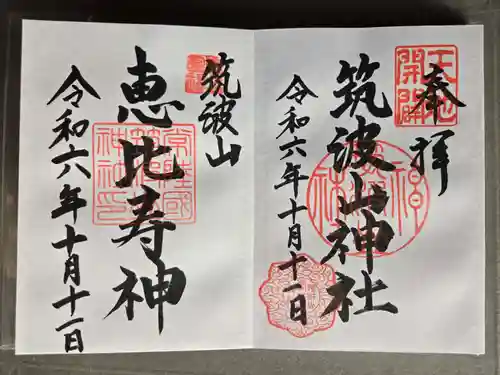 奉拝
天地開闢
筑波山神社
令和六年十月十一日
筑波山
恵比寿神
令和六年十月十一日